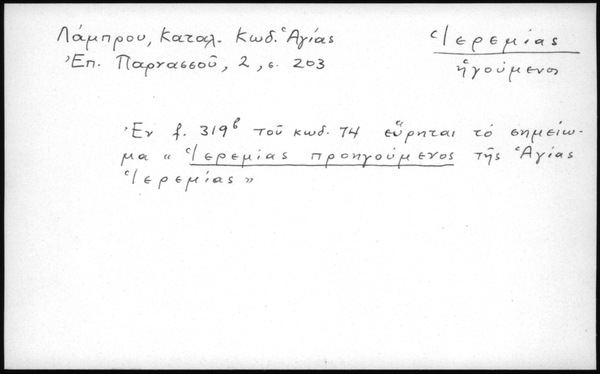 Λάμπρου, Καταλ. Κωδ. Ἁγίας
Ἐπ. Παρνασσοῦ, 2, σ. 203
Ἱερεμίας
ἡγούμενος
Ἐν f. 319β τοῦ κωδ. 74 εὕρηται τὸ σημείω-
μα " Ἱερεμίας προηγούμενος τῆς Ἁγίας
Ἱερεμίας "